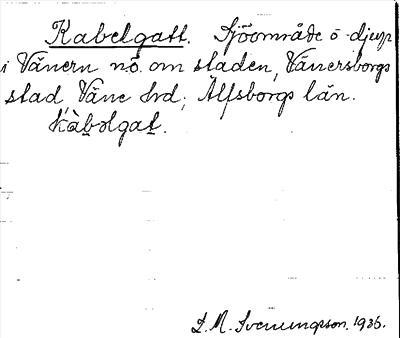 Kabelgatt. Sjöområde o djup
i Vänern nö. om staden, Vänersborgs
stad, Väne hrd, Älfsborgs län.
kàbəlgat.
S. M. Svenungsson. 1936.